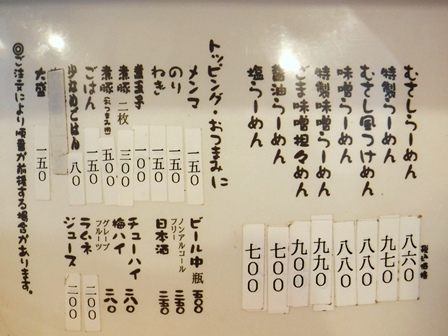 むさしらーめん 八六〇
税込価格
特製らーめん 九七〇
むさし風つけめん 八八〇
味噌らーめん 八八〇
特製味噌らーめん 九九〇
ごま味噌担々めん 九〇〇
醤油らーめん 七〇〇
塩らーめん 七〇〇
トッピング・おつまみに
メンマ 一五〇
のり 一五〇
ねぎ 一五〇
煮玉子 一〇〇
煮豚 二枚 三〇〇
煮豚(おつまみ用) 五〇〇
ごはん 一五〇
少なめごはん 八〇
大盛 一五〇
ビール中瓶 五〇〇
ノンアルコールフリー 二五〇
日本酒 二五〇
チューハイ 二八〇
梅ハイ 二八〇
グレープフルーツ
ラムネ 二〇〇
ジュース 二〇〇
◎ご注文により順番が前後する場合があります。